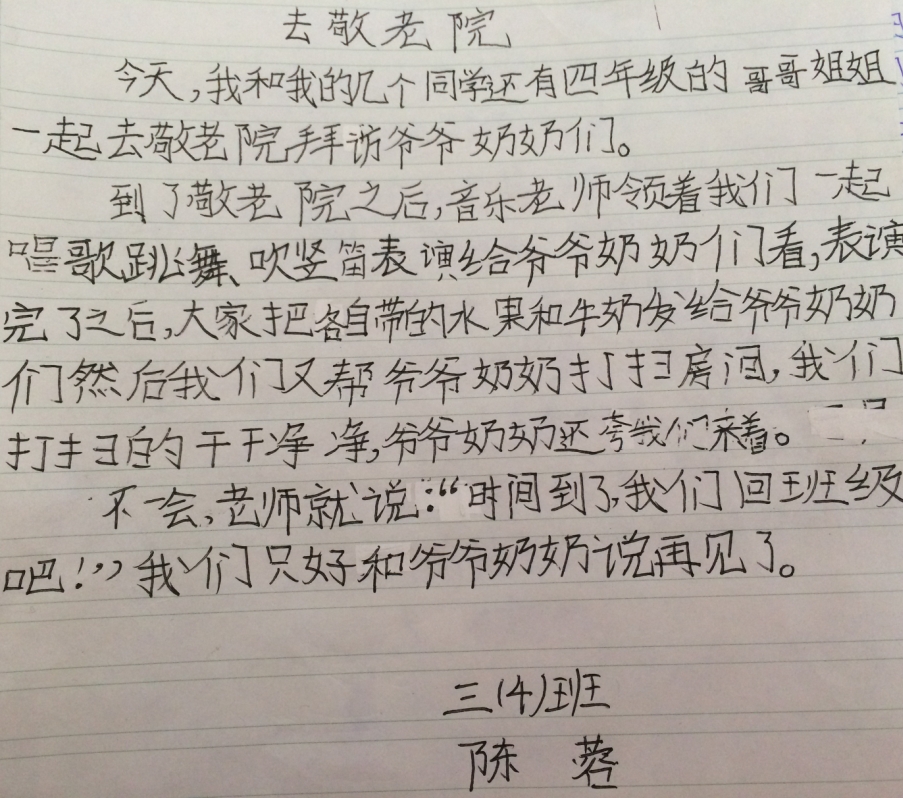 去敬老院
今天,我和我的几个同学还有四年级的哥哥姐姐
一起去敬老院拜访爷爷奶奶们。
到了敬老院之后,音乐老师领着我们一起
唱歌跳舞、吹竖笛表演给爷爷奶奶们看,表演
完了之后,大家把各自带的水果和牛奶发给爷爷奶奶
们然后我们又帮爷爷奶奶打扫房间,我们
打扫的干干净净,爷爷奶奶还夸我们来着。
不一会,老师就说:“时间到了,我们回班级
吧!”我们只好和爷爷奶奶说再见了。
三(4)班
陈蓉